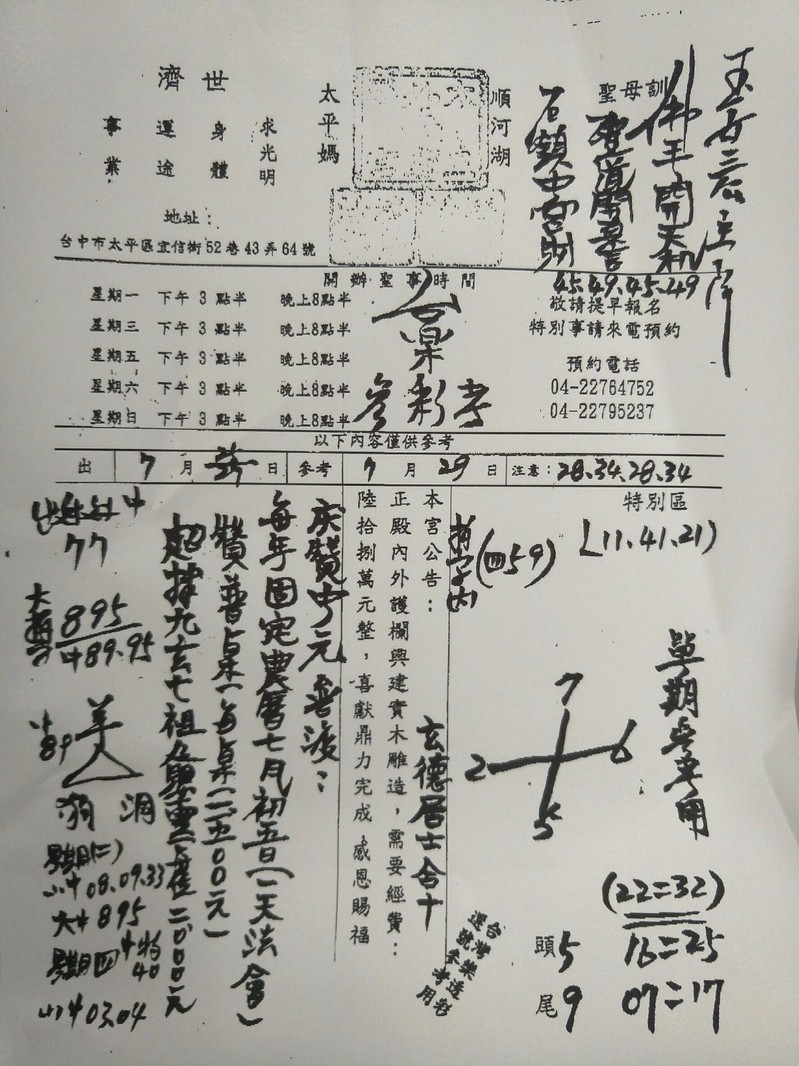 濟世
事業
運途
身體
求光明
太平媽
順河湖
聖母訓
地址：
台中市太平區宜信街52巷43弄64號
佛王開天机
45.49.45.49
開辦聖事時間
星期一 下午 3 點半 晚上8點半
星期三 下午 3 點半 晚上8點半
星期五 下午 3 點半 晚上8點半
星期六 下午 3 點半 晚上8點半
星期日 下午 3 點半 晚上8點半
敬請提早報名
特別事請來電預約
預約電話
04-22764752
04-22795237
以下內容僅供參考
出 7 月 日 參考 7 月 29 日 注意：28.34.28.34
特別區
(11.41.21)
(四59)
本宮公告：
正殿內外護欄興建實木雕造，需要經費：
陸拾捌萬元整，喜獻鼎力完成 感恩賜福
玄德居士合十
慶贊中元普渡：
每年固定農曆七月初五日(一天法會)
贊普桌(每桌(二五00元)
超拔九玄七祖 二000元
77
895
489.95
小
89
羊
人
狗 洞
星期(二)
小中 08.09.33
大中 895
星期四 中特
40
小中 03.04
7
2 6
5
單期參考用
(22=32)
16=25
07=17
頭5
尾9
台灣樂透彩
選號參考用